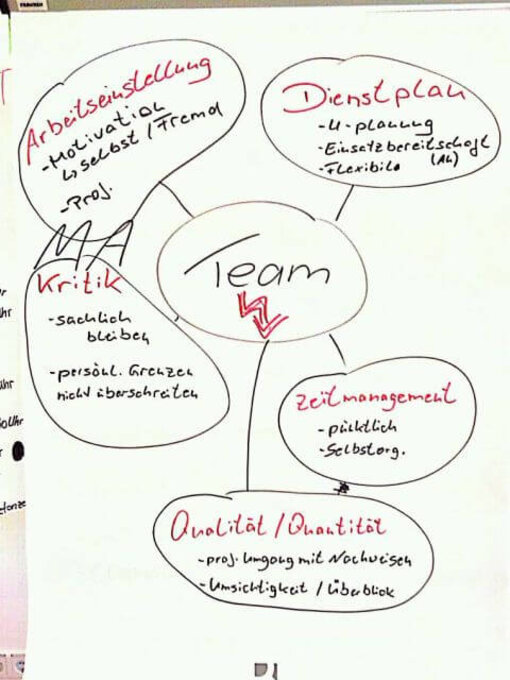 Arbeitseinstellung
- Motivation
↳ selbst / Fremd
- Proj.
Dienstplan
- U-planung
- Einsatzbereitschaft
(AU)
- Flexibile
MA
Team
Kritik
- sachlich
bleiben
- persönl. Grenzen
nicht überschreiten
Zeitmanagement
- pünktlich
- Selbstorg.
Qualität / Quantität
- proj. Umgang mit Nachweisen
- Umsichtigkeit / Überblick
Uhr